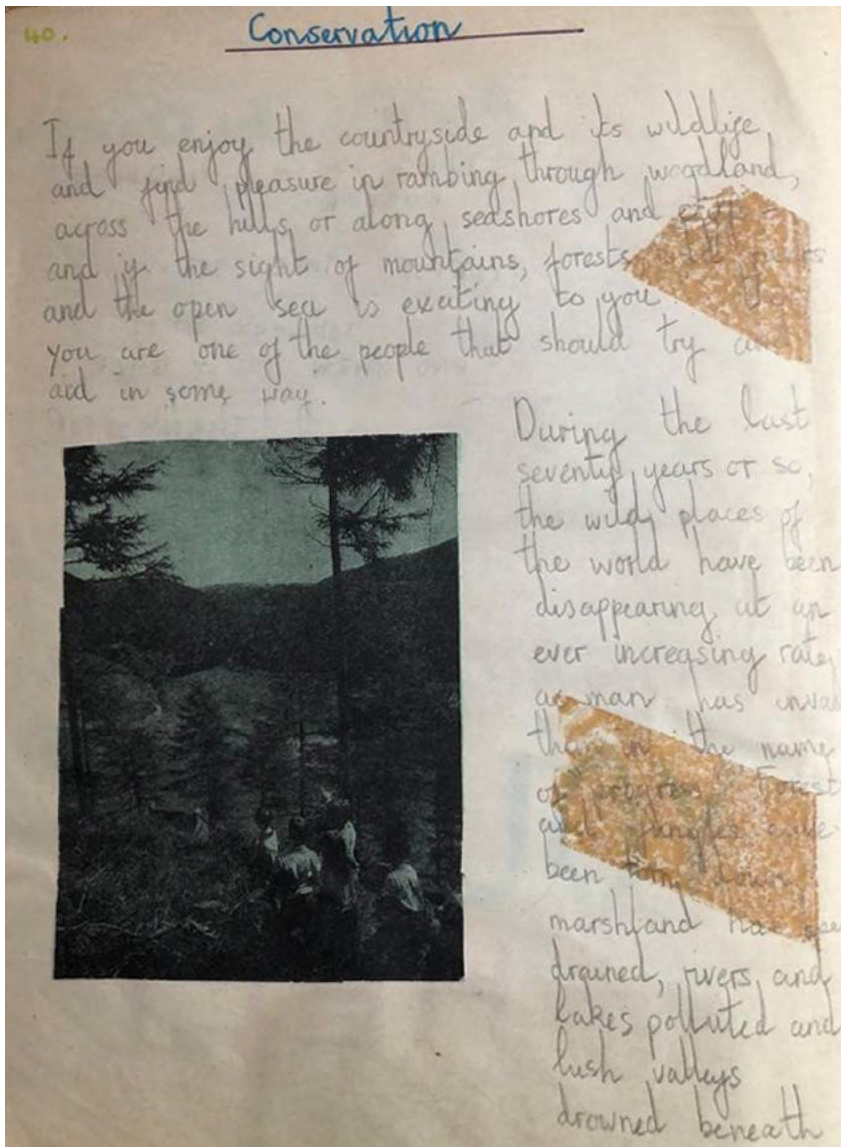 40.
Conservation
If you enjoy the countryside and its wildlife,
and find pleasure in rambing through woodland,
across the hills, or along seashores and
and if the sight of mountains, forests
and the open sea is exciting to you
you are one of the people that should try
aid in some way.
During the last
seventy years or so,
the wild places of
the world have been
disappearing at an
ever increasing rate,
as man has inva
than in the name
of progress. Forest
and jungles have
been torn down,
marshland has
drained, rivers and
lakes polluted and
lush valleys
drowned beneath